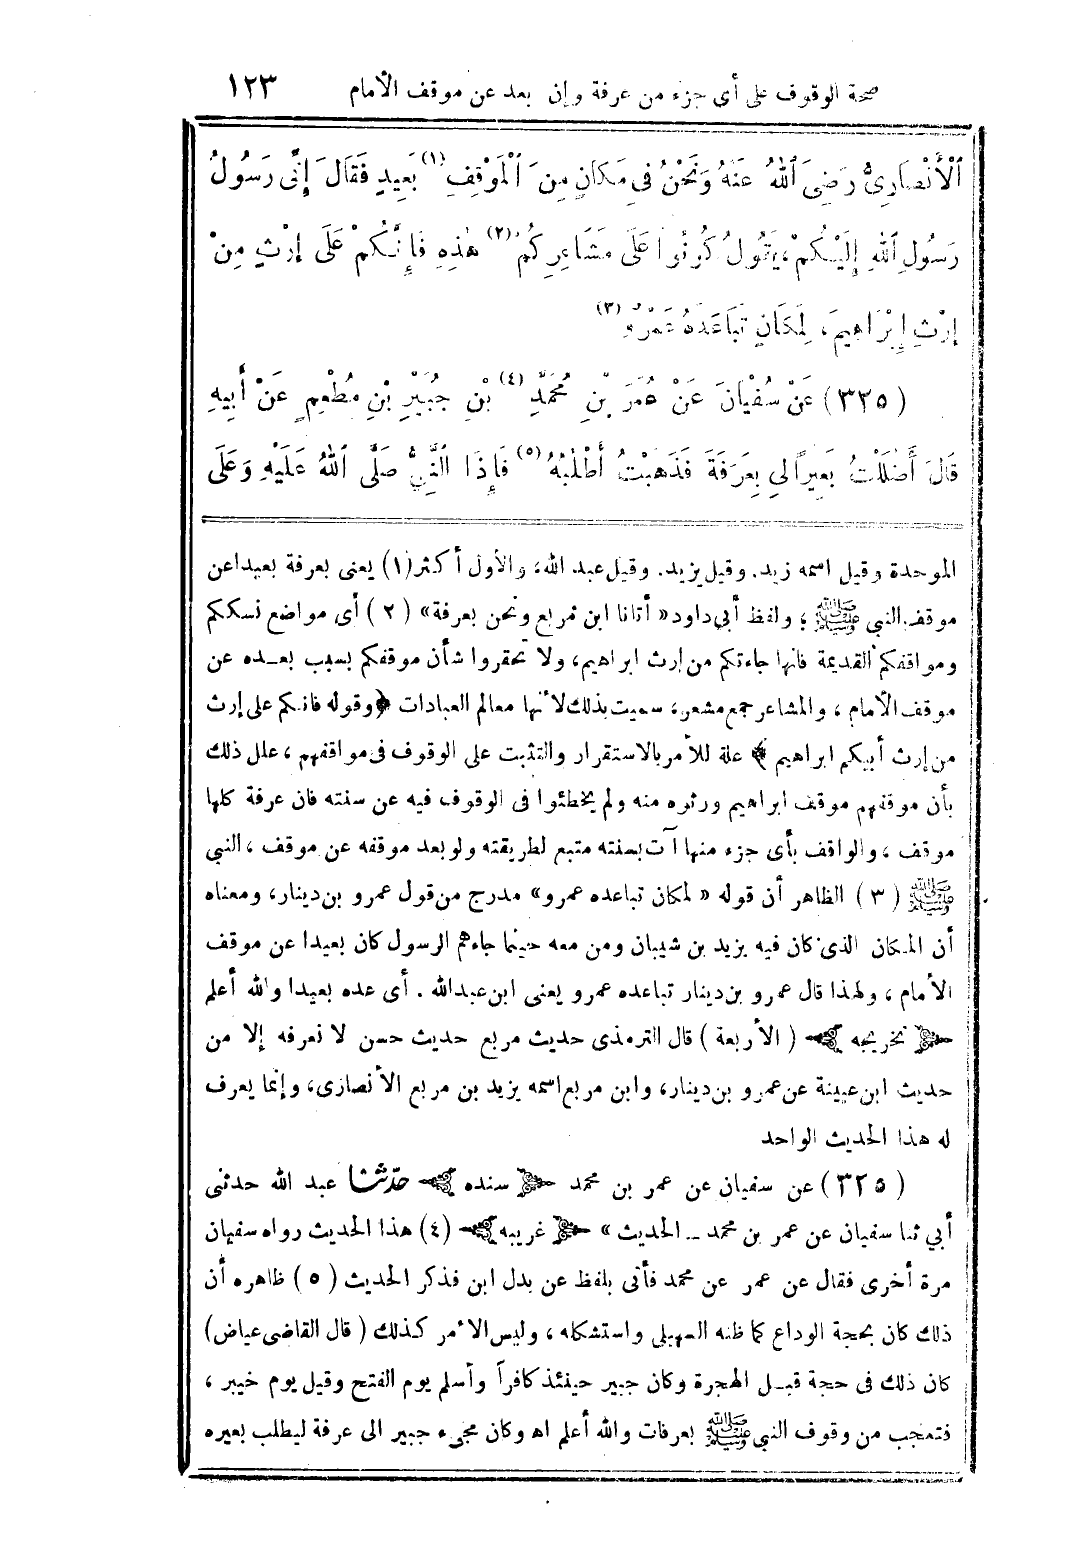 صحة الوقوف على أى جزء من عرفة وإن بعد عن موقف الأمام ١٢٣
ٱلْأَنْصَارِىُّ رَضِىَ ٱللهُ عَنْهُ وَنَحْنُ فِى مَكَانٍ مِنَ ٱلْمَوْقِفِ (١) بَعِيدٍ فَقَالَ إِنِّى رَسُولُ
رَسُولِ ٱللهِ إِلَيْكُمْ، يَقُولُ كُونُوا عَلَى مَشَاعِرِكُمْ (٢) هٰذِهِ فَإِنَّكُمْ عَلَى إِرْثٍ مِنْ
إِرْثِ إِبْرَاهِيمَ، لِمَكَانٍ تَبَاعَدَهُ عَمْرٌو (٣)
(٣٢٥) عَنْ سُفْيَانَ عَنْ عُمَرَ بْنِ مُحَمَّدِ (٤) بْنِ جُبَيْرِ بْنِ مُطْعِمٍ عَنْ أَبِيهِ
قَالَ أَضْلَلْتُ بَعِيرًا لِى بِعَرَفَةَ فَذَهَبْتُ أَطْلُبُهُ (٥) فَإِذَا ٱلنَّبِىُّ صَلَّى ٱللهُ عَلَيْهِ وَعَلَى
الموحدة وقيل اسمه زيد. وقيل يزيد. وقيل عبد الله، والأول أكثر (١) يعنى بعرفة بعيدا عن
موقف النبي ﷺ؛ ولفظ أبي داود « أتانا ابن مربع ونحن بعرفة» (٢) أى مواضع نسككم
ومواقفكم القديمة فانها جاءتكم من إرث ابراهيم، ولا تحقروا شأن موقفكم بسبب بعـده عن
موقف الأمام ، والمشاعر جمع مشعر، سميت بذلك لأنها معالم العبادات ﴿وقوله فانكم على إرث
من إرث أبيكم ابراهيم﴾ علة للأمر بالاستقرار والتثبت على الوقوف فى مواقفهم ، علل ذلك
بأن موقفهم موقف ابراهيم ورثوه منه ولم يخطئوا فى الوقوف فيه عن سنته فان عرفة كلها
موقف ، والواقف بأى جزء منها آت بسنته متبع لطريقته ولو بعد موقفه عن موقف ، النبي
ﷺ (٣) الظاهر أن قوله « لمكان تباعده عمرو» مدرج من قول عمرو بن دينار، ومعناه
أن المكان الذى كان فيه يزيد بن شيبان ومن معه حينما جاءهم الرسول كان بعيدا عن موقف
الأمام ، ولهذا قال عمرو بن دينار تباعده عمرو يعنى ابن عبدالله . أى عده بعيدا والله أعلم
﴿تخريجه﴾ ( الأربعة ) قال الترمذى حديث مربع حديث حسن لا نعرفه إلا من
حديث ابن عيينة عن عمرو بن دينار، وابن مربع اسمه يزيد بن مربع الأنصارى، وإنما يعرف
له هذا الحديث الواحد
(٣٢٥) عن سفيان عن عمر بن محمد ﴿سنده﴾ حدّثنا عبد الله حدثنى
أبي ثنا سفيان عن عمر بن محمد ــ الحديث » ﴿غريبه﴾ (٤) هذا الحديث رواه سفيان
مرة أخرى فقال عن عمر عن محمد فأتى بلفظ عن بدل ابن فذكر الحديث (٥) ظاهره أن
ذلك كان بحجة الوداع كما ظنه السهيلى واستشكله ، وليس الأمر كذلك ( قال القاضى عياض)
كان ذلك فى حجة قبـل الهجرة وكان جبير حينئذ كافراً وأسلم يوم الفتح وقيل يوم خيبر ،
فتعجب من وقوف النبى ﷺ بعرفات والله أعلم اه وكان مجىء جبير الى عرفة ليطلب بعيره